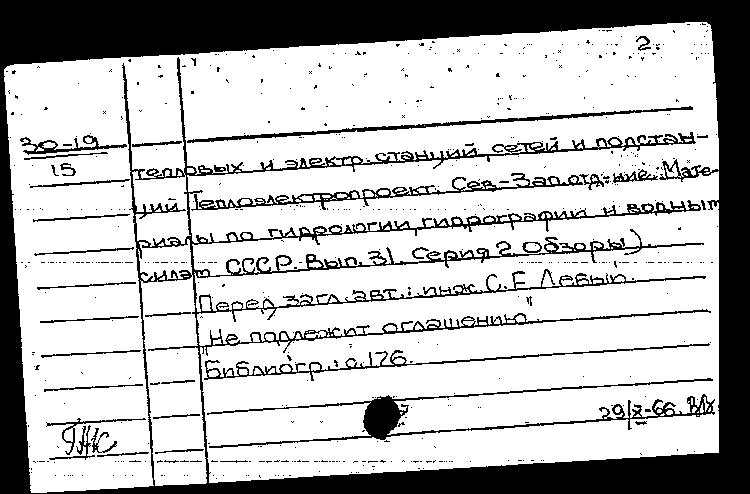 2.
30-19
15
тепловых и электр. станций, сетей и подстан-
ций Теплоэлектропроект. Сев-Зап.отд-ние. Мате-
риалы по гидрологии, гидрографии и водным
силам СССР. Вып. 31. Серия 2. Обзоры).
Перед загл. авт.: инж. С. Е. Левый.
"Не подлежит оглашению"
Библиогр.: с. 176.
29/X-66.